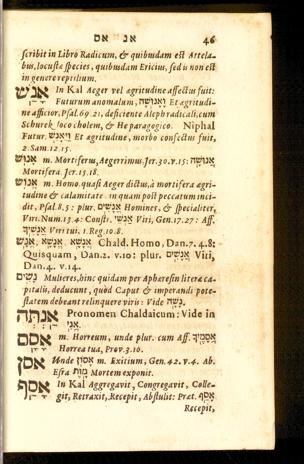 אנ אס 46
scribit in Libro Radicum, & quibusdam est Artela-
bus, locustæ species, quibusdam Ericius, sed is non est
in genere reptilium.
אָנַשׁ In Kal Aeger vel agritudine affectus fuit:
Futurum anomalum, וָאָנוּשָׁה Et agritudi-
ne afficior, Psal. 69. 21. deficiente Aleph radicali, cum
Schurek loco cholem, & He paragogico. Niphal
Futur. וַיֵּאָנַשׁ Et agritudine, morbo confectus fuit,
2. Sam. 12. 15.
אָנוּשׁ m. Mortiferus, Aegerrimus. Jer. 30. v. 15: אֲנוּשָׁה
Mortifera. Jer. 15. 18.
אֱנוֹשׁ m. Homo. quasi Aeger dictus, à mortifera agri-
tudine & calamitate in quam post peccatum inci-
dit, Psal. 8. 5: plur. אֲנָשִׁים Homines, & specialiter,
Viri. Num. 13. 4: Constr. Viri, Gen. 17. 27: Aff.
Viri tui. 1. Reg. 10. 8.
Chald. Homo, Dan. 7. 4. 8:
Quisquam, Dan. 2. v. 10: plur. Viri,
Dan. 4. v. 14.
נָשִׁים Mulieres, hinc quidam per Apharesin litera ca-
pitalis, deducunt, quòd Caput & imperandi pote-
statem debeant relinquere viris: Vide נָשָׁה
אַנְתָּה Pronomen Chaldaicum: Vide in
אֲנִי
אָסָם m. Horreum, unde plur. cum Aff. אֲסָמֶיךָ
Horrea tua, Prov. 3. 10.
אסן Unde אָסוֹן m. Exitium, Gen. 42. v. 4. Ab.
Esra מָוֶת Mortem exponit.
אָסַף In Kal Aggregavit, Congregavit, Colle-
git, Retraxit, Recepit, Abstulit: Præt. אָסַף
Recepit,